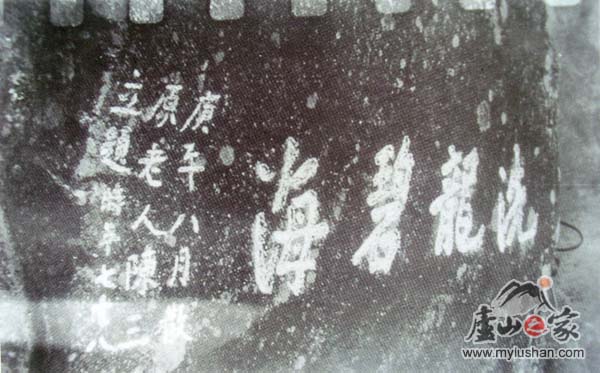 洗龍碧海
庚午八月散
原老人陳三
立題時年七十八
廬山之家
www.mylushan.com